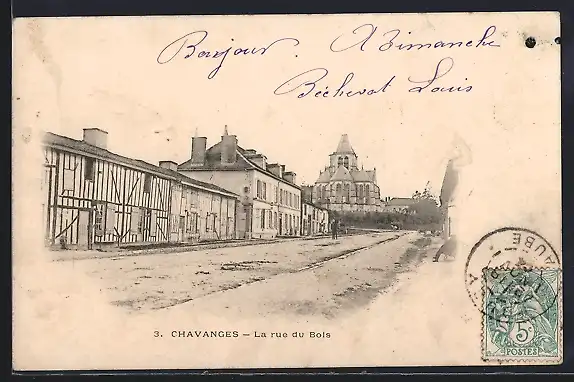 Bonjour. A Dimanche
Béchevat Louis
3. CHAVANGES – La rue du Bois
AUBE
5c
POSTES